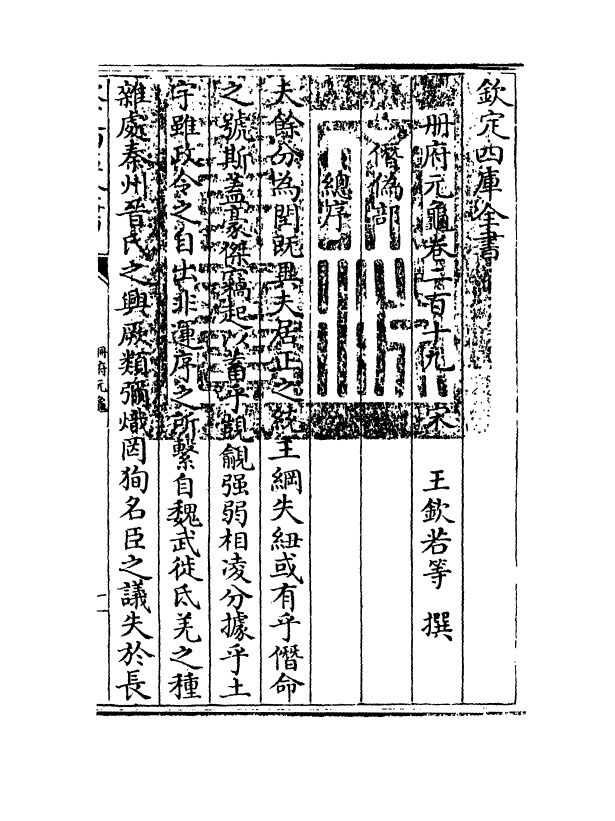 欽定四庫全書
冊府元龜卷二百十九
宋 王欽若等 撰
僭偽部
總序
夫餘分為閏既異夫居正之統王綱失紐或有乎僭命
之號斯蓋豪傑竊起以蓄乎覬覦强弱相凌分據乎土
宇雖政令之自出非運序之所繫自魏武徙氐羌之種
雜處秦州晉氏之興厥類彌熾罔狥名臣之議失於長
冊府元龜